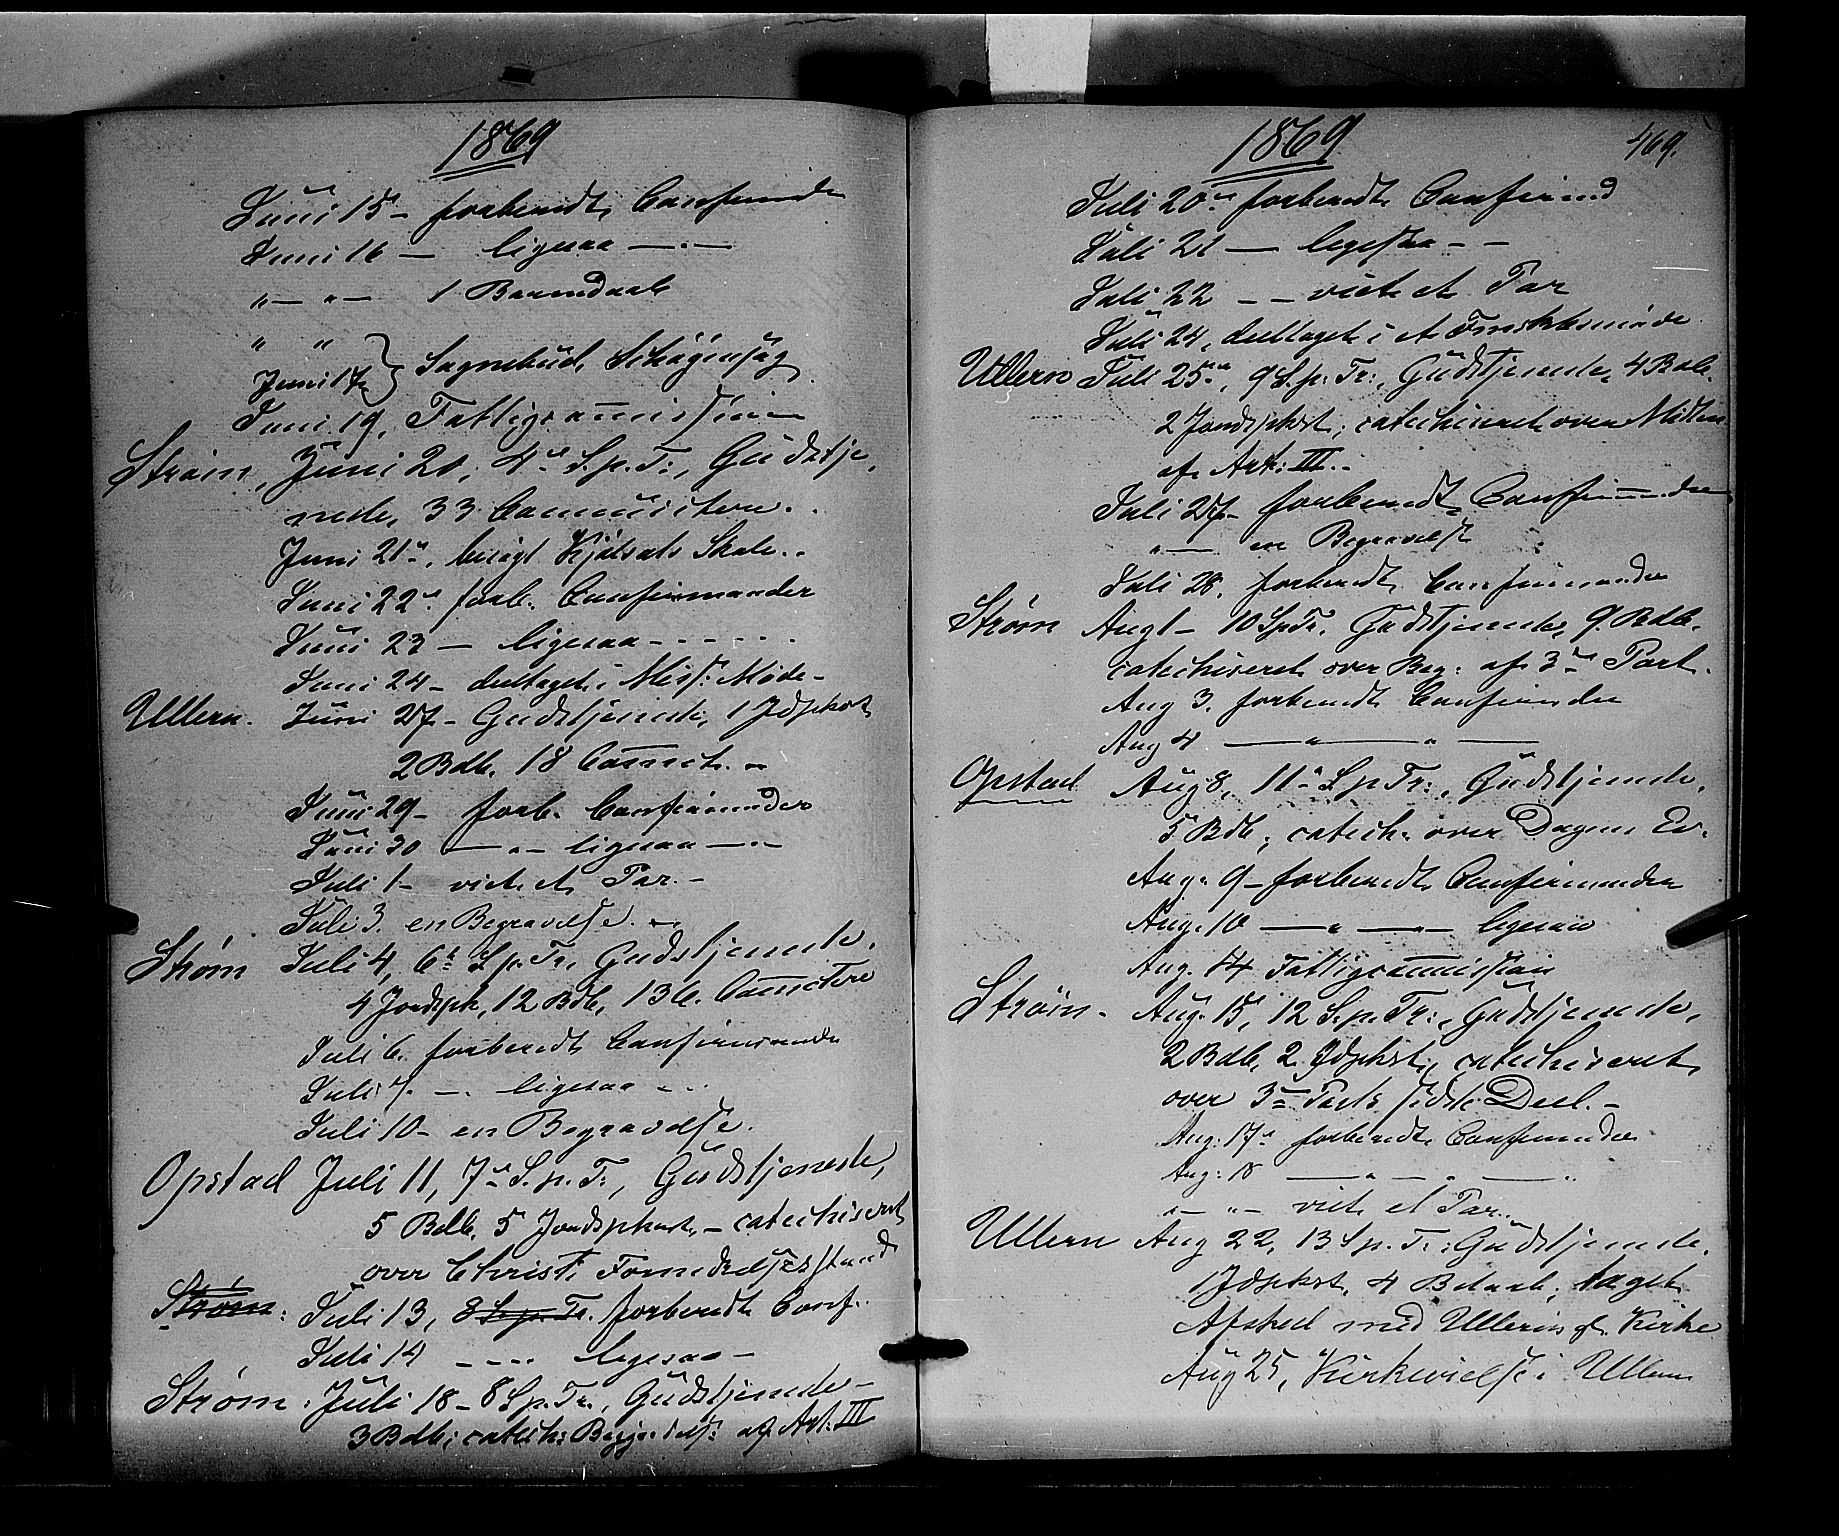 1869
Juni 15 - forberedt Confirmnde
Juni 16 — ligesaa — . —
" — " — 1 Barnedaab
" "
Juni 17 } Sognebud,
Juni 19, Fattigcom̄ission
Strøm, Juni 20, 4de S. p. Tr:, Gudstje
neste, 33 Communictere.
Juni 21de, besøgt Kjølsæts Skole..
Juni 22de forb. Confirmander
Juni 23 — ligesaa - - - - -
Juni 24 - deeltaget i Miss: Møde -
Ullern. Juni 27 - Gudstjeneste, 1 Jdpkst
2 Bdb, 18 Com̄ct.
Juni 29 - forb. Confirmnder
Juni 30 — " — ligesaa — " —
Juli 1 - viet et Par. -
Juli 3. en Begravelse.
Strøm Juli 4, 6te S. p. Tr, Gudstjeneste.
4 Jordspk, 12 Bdb, 136. Com̄ctere
Juli 6. forberedt Confirmande
Juli 7. — . ligesaa - . .
Juli 10 - en Begravelse.
Opstad Juli 11, 7de S. p. T:, Gudstjeneste,
5 Bdb. 5 Jordspkast, - catechiseret
over Christi Fornedrelsesstand
Strøm: Juli 13, 8 S. p. Tr. forberedt Conf.
Juli 14 - - - - ligesaa -
Strøm. Juli 18 - 8 S. p. Tr., Gudstjeneste -
3 Bdb; catech: Begyndels: af Art: III
1869
469.
Juli 20de forberedt Confirmnd
Juli 21 — ligesaa - -
Juli 22 - - viet et Par
Juli 24, deeltaget i et Forliksmøde
Ullern Juli 25de, 9 S. p: Tr:, Gudstjeneste, 4 Bdb.
2 Jordspkst; catechiseret over Midten
af Art: III. -
Juli 27 - forberedt Confirm̄nder
" — en Begravelse
Juli 28. forberedt Confirmander
Strøm Aug 1 - 10 SpTr. Gudstjeneste, 9. Bdb.
catechiseret over Beg: af 3de Part.
Aug 3. forberedt Confirmnder
Aug 4 — " — " —
Opstad Aug 8, 11te S p Tr:, Gudstjeneste,
5 Bdb; catech. over Dagens Ev.
Aug. 9 - forberedt Confirmander
Aug. 10 — " — " — ligesaa
Aug. 14 Fattigcom̄ission
Strøm. Aug. 15, 12 S. p. Tr:, Gudstjeneste,
2 Bdb, 2 Jdpkst, catechiseret
over 3de Parts sidste Deel. -
Aug. 17de forberedt Confirmnder
Aug: 18 — " — " — "
" — " — viet et Par.
Ullern Aug 22, 13 S p. Tr: Gudstjeneste.
1 Jdpkst, 4 Bdaab; taget
Afsked med Ullerns gl. Kirke
Aug 25, Kirkevielse i Ullern